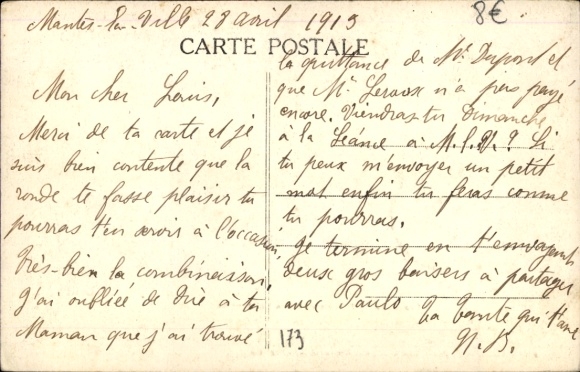 Mantes-la-Ville 28 avril 1913
8€
CARTE POSTALE
Mon cher Louis,
Merci de ta carte et je
suis bien contente que la
ronde te fasse plaisir tu
pourras t'en servir à l'occasion.
Très-bien la combinaison.
J'ai oubliée de dire à ta
Maman que j'ai trouvé
la quittance de Mr Dupont et
que Mr Leroux n'a pas payé
encore. Viendras-tu Dimanche
à la Séance à M.l.V.? Si
tu peux m'envoyer un petit
mot enfin tu feras comme
tu pourras.
Je termine en t'envoyant
deux gros baisers à partager
avec Paulo
Ta tante qui t'aime
173